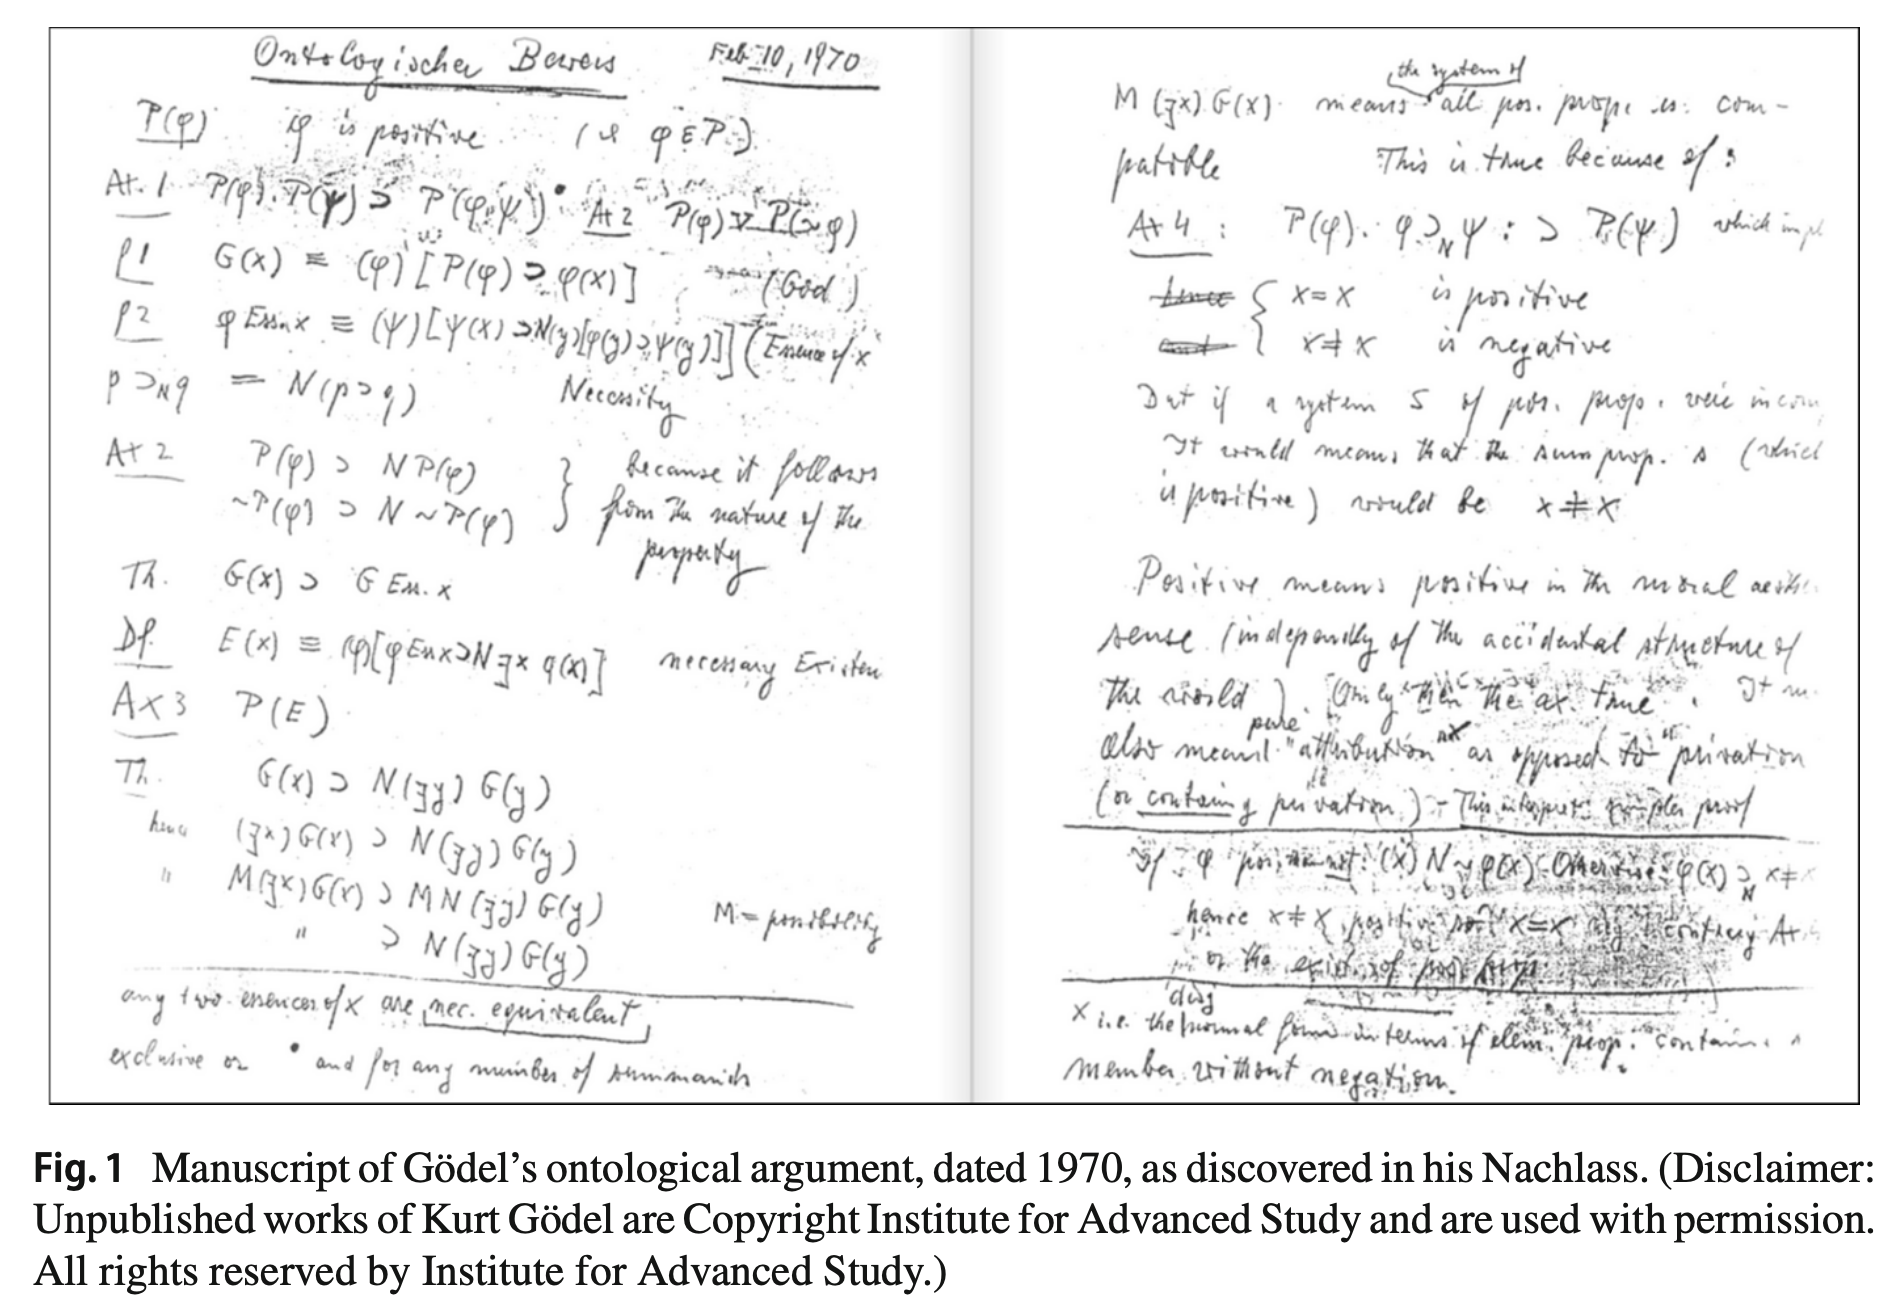 Ontologischer Beweis Feb. 10, 1970
P(φ) φ is positive (i.e. φ ε P.)
At. 1 P(φ).P(ψ) ⊃ P(φ.ψ)• At 2 P(φ) ∨ P(~φ)
P1 G(x) ≡ (φ)[P(φ) ⊃ φ(x)] (God)
P2 φ Ess. x ≡ (ψ)[ψ(x) ⊃ N(y)[φ(y) ⊃ ψ(y)]] (Essence of x
p ⊃N q = N(p ⊃ q) Necessity
At 2 P(φ) ⊃ N P(φ) } because it follows
~P(φ) ⊃ N ~P(φ) } from the nature of the
property
Th. G(x) ⊃ G Ess. x
Df. E(x) ≡ (φ)[φ Ess x ⊃ N ∃x φ(x)] necessary Existen
Ax 3 P(E)
Th. G(x) ⊃ N(∃y) G(y)
hence (∃x) G(x) ⊃ N(∃y) G(y)
" M(∃x) G(x) ⊃ M N (∃y) G(y) M = possibility
" ⊃ N(∃y) G(y)
any two essences of x are nec. equivalent
exclusive or • and for any number of summands
the system of
M (∃x) G(x) means all pos. prop. is com-
patible This is true because of :
At 4 : P(φ). φ ⊃N ψ : ⊃ P(ψ) which impl
hence { x = x is positive
and { x ≠ x is negative
But if a system S of pos. prop. were incom
It would mean that the sum prop. s (which
is positive) would be x ≠ x
Positive means positive in the moral aesthe
sense (independly of the accidental structure of
the world). Only then the ax. true. It m
pure
also mean "attribution" as opposed to "privation
(or containing privation.) – This interpret. simpler proof
If φ pos. then not: (x) N ~φ(x) – Otherwise: φ(x) ⊃N x ≠ x
hence x ≠ x positive so x = x contrary At
or the exist. of pos. prop.
disj
x i.e. the normal form in terms of elem. prop. contains a
member without negation.
Fig. 1 Manuscript of Gödel’s ontological argument, dated 1970, as discovered in his Nachlass. (Disclaimer:
Unpublished works of Kurt Gödel are Copyright Institute for Advanced Study and are used with permission.
All rights reserved by Institute for Advanced Study.)